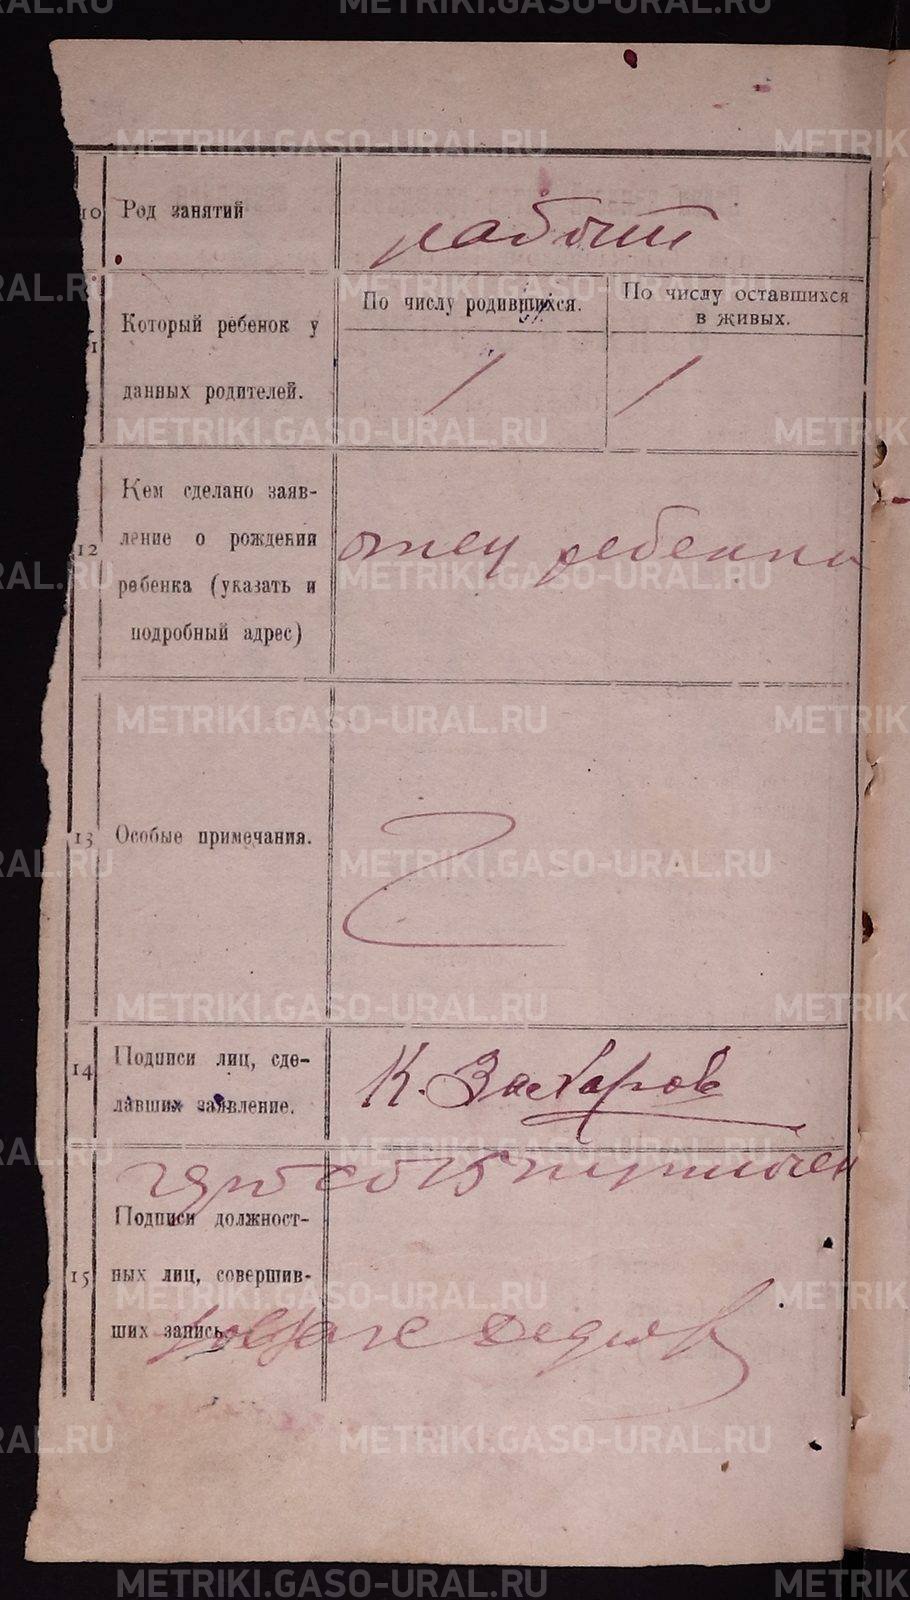 METRIKI.GASO-URAL.RU
10 Род занятий
рабочий
Который ребенок у
данных родителей.
По числу родившихся.
По числу оставшихся
в живых.
1
1
12
Кем сделано заяв-
ление о рождении
ребенка (указать и
подробный адрес)
отец ребенка
13 Особые примечания.
14
Подписи лиц, сде-
лавших заявление.
К. Захаров
15
Подписи должност-
ных лиц, совершив-
ших запись.